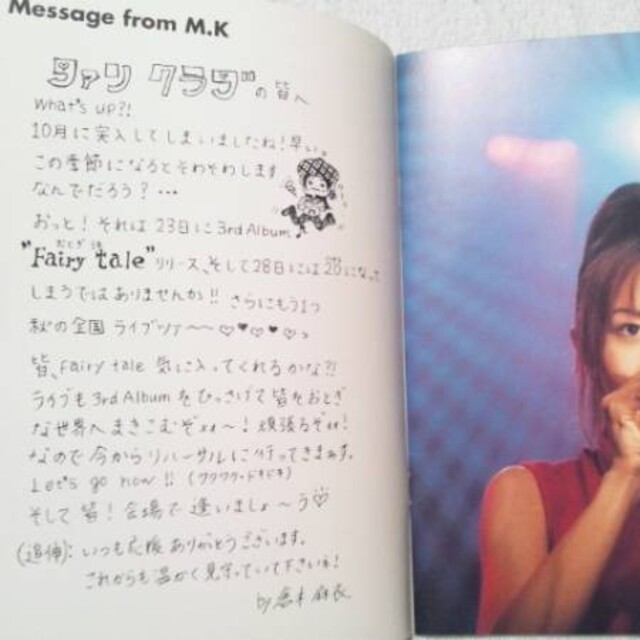 Message from M.K
ファン クラブの皆へ
What's up?!
10月に突入してしまいましたね!早い。
この季節になるとそわそわします
なんでだろう?…
おっと!それは23日に3rd Album
おとぎ話
"Fairy tale"リリース、そして28日には20になって
しまうではありませんか!! さらにもう1つ
秋の全国ライブツアー〜♡♥♡♥♡、
皆、Fairy tale 気に入ってくれるかな?!
ライブも3rd Albumをひっさげて皆をおとぎ
な世界へまきこむぞォォ〜! 頑張るぞォォ!
なので今からリハーサルに行ってきまーす。
Let's go now!! (ワクワク・ドキドキ)
そして皆!会場で逢いましょ〜う♡
(追伸):いつも応援ありがとうございます。
これからも温かく見守っていて下さいネ!
by 倉木麻衣